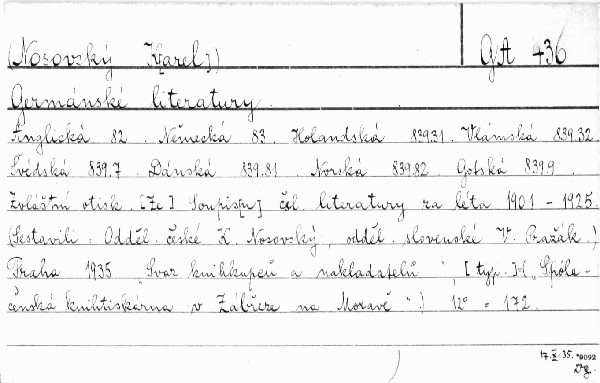 (Nosovský K[arel]) GA 436
Germánské literatury.
Anglická 82. Německá 83. Holandská 839.31. Vlámská 839.32.
Švédská 839.7. Dánská 839.81. Norská 839.82. Gotská 839.9.
Zvláštní otisk [ze] Soupis[u] čsl. literatury za léta 1901 - 1925.
(Sestavili: Odděl. české K. Nosovský, odděl. slovenské V. Pražák.)
Praha 1935 „Svaz knihkupců a nakladatelů“, [typ.] („Společenská
knihtiskárna v Zábřeze na Moravě“.) 12° = 172.
17.X.35. *9092